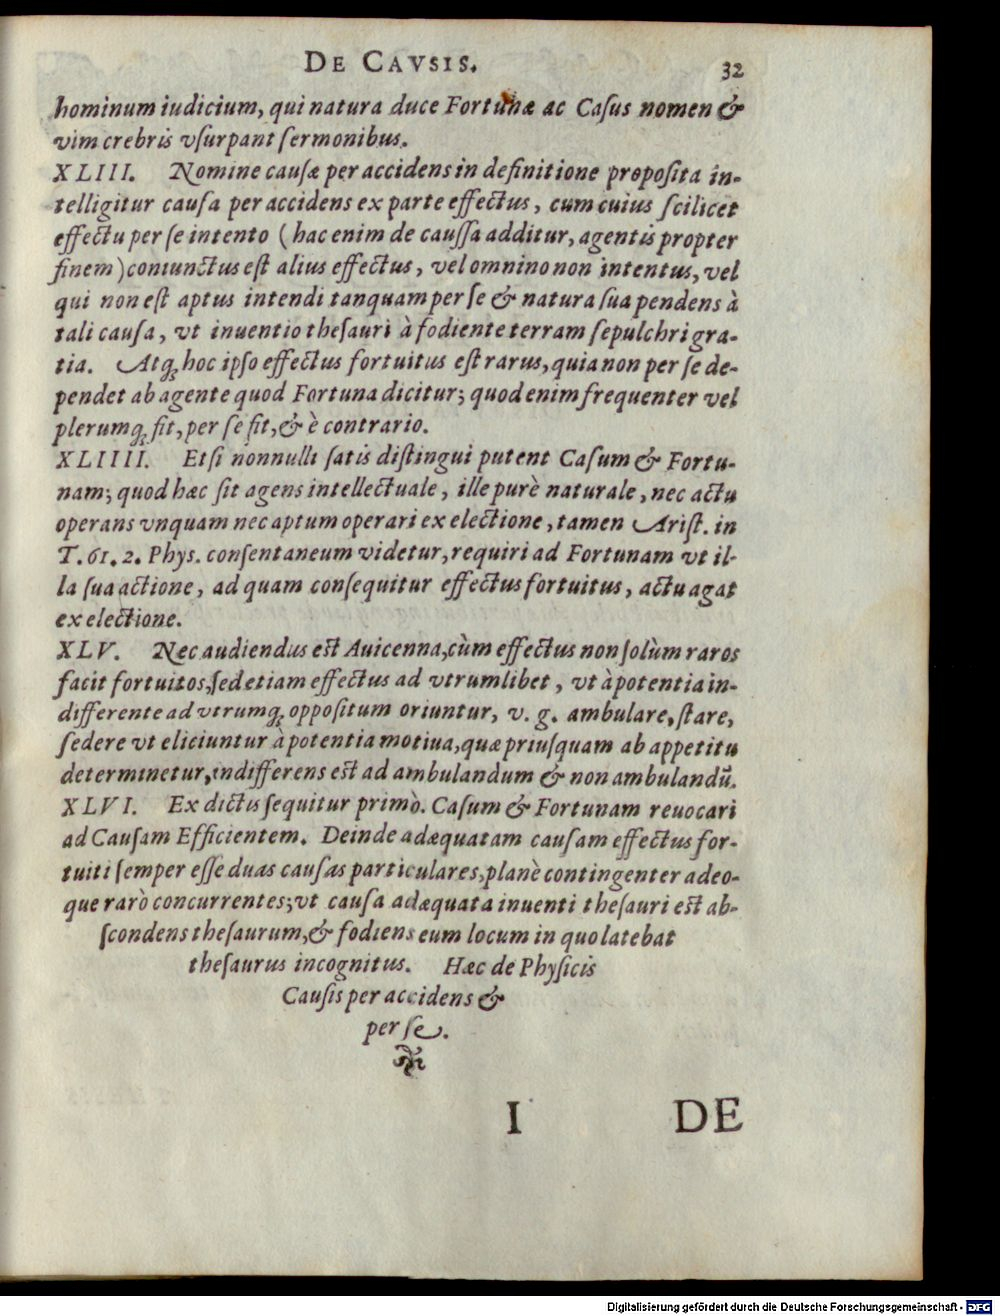 DE CAVSIS.
32
hominum iudicium, qui natura duce Fortunæ ac Caſus nomen &
vim crebris vſurpant ſermonibus.
XLIII. Nomine cauſæ per accidens in definitione propoſita in-
telligitur cauſa per accidens ex parte effectus, cum cuius ſcilicet
effectu per ſe intento (hac enim de cauſſa additur, agentis propter
finem) coniunctus eſt alius effectus, vel omnino non intentus, vel
qui non eſt aptus intendi tanquam per ſe & natura ſua pendens à
tali cauſa, vt inuentio theſauri à fodiente terram ſepulchri gra-
tia. Atq; hoc ipſo effectus fortuitus eſt rarus, quia non per ſe de-
pendet ab agente quod Fortuna dicitur; quod enim frequenter vel
plerumq; fit, per ſe fit, & è contrario.
XLIIII. Etſi nonnulli ſatis diſtingui putent Caſum & Fortu-
nam; quod hæc ſit agens intellectuale, ille purè naturale, nec actu
operans vnquam nec aptum operari ex electione, tamen Ariſt. in
T. 61. 2. Phyſ. conſentaneum videtur, requiri ad Fortunam vt il-
la ſua actione, ad quam conſequitur effectus fortuitus, actu agat
ex electione.
XLV. Nec audiendus eſt Auicenna, cùm effectus non ſolùm raros
facit fortuitos, ſed etiam effectus ad vtrumlibet, vt à potentia in-
differente ad vtrumq; oppoſitum oriuntur, v. g. ambulare, ſtare,
ſedere vt eliciuntur à potentia motiua, quæ priuſquam ab appetitu
determinetur, indifferens eſt ad ambulandum & non ambulandū.
XLVI. Ex dictis ſequitur primò. Caſum & Fortunam reuocari
ad Cauſam Efficientem. Deinde adæquatam cauſam effectus for-
tuiti ſemper eſſe duas cauſas particulares, planè contingenter adeo-
que rarò concurrentes; vt cauſa adæquata inuenti theſauri eſt ab-
ſcondens theſaurum, & fodiens eum locum in quo latebat
theſaurus incognitus. Hæc de Phyſicis
Cauſis per accidens &
per ſe.
I DE
Digitalisierung gefördert durch die Deutsche Forschungsgemeinschaft - DFG